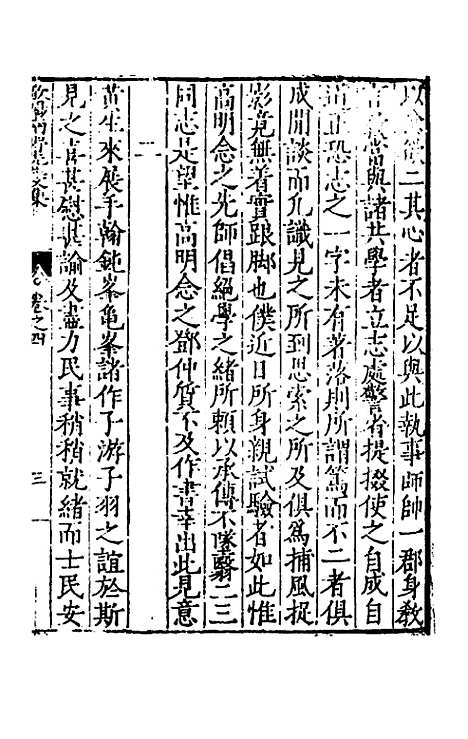 以二其心者不足以與此執事師帥一郡身教
言常與諸共學者立志處警省提掇使之自成自
道正恐志之一字未有著落則所謂篤而不二者俱
成閒談而凡識見之所到思索之所及俱為捕風捉
影竟無着實跟脚也僕近日所身親試驗者如此惟
高明念之先師倡絕學之緒所賴以承傳不墜翳二三
同志是望惟高明念之鄧仲質不及作書幸出此見意
二
黃生來展手翰鈍峯龜峯諸作子游子羽之誼於斯
見之喜甚慰甚諭及盡力民事稍稍就緒而士民安
文集
卷之四
三